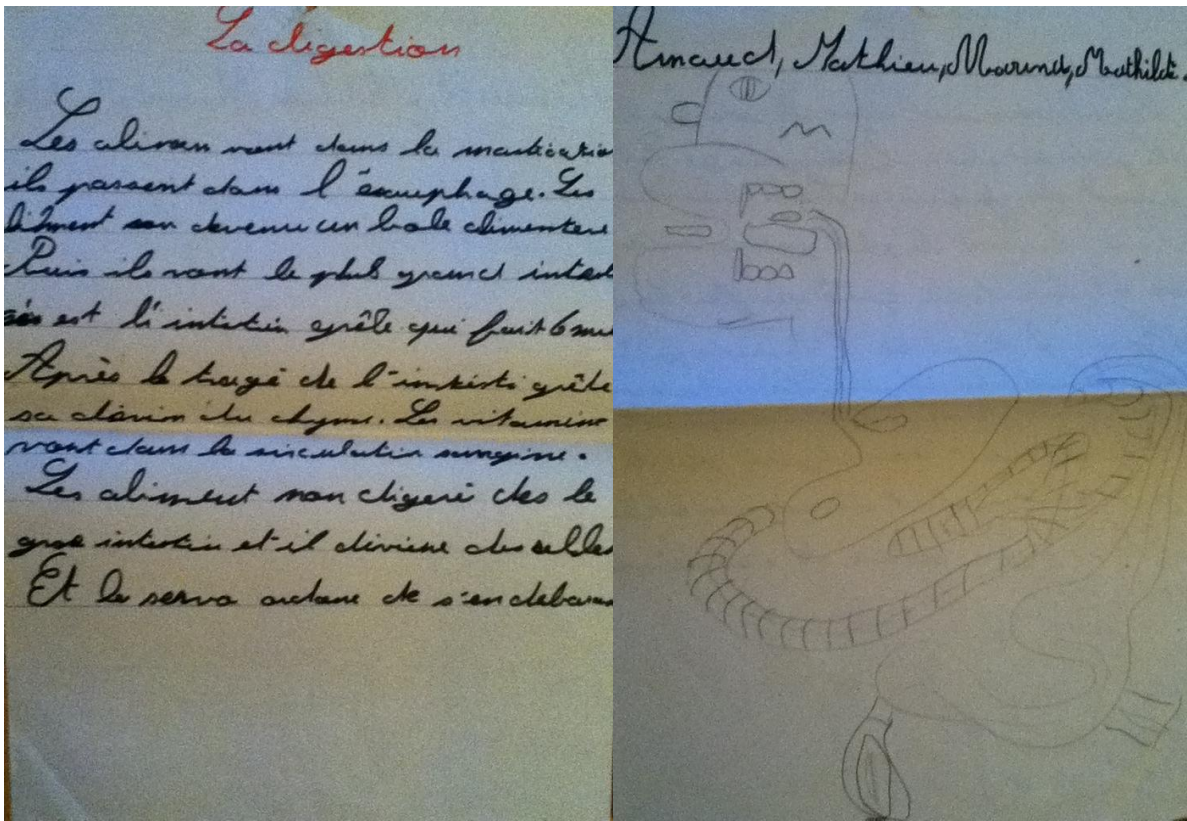 La digestion
Les alimen vont dans la masticatio
ils passent dans l'éseuphage. Les
liment son devenu un bole alimentere
Puis ils vont le plus grand intest
est l'intestin grêle qui fait 6 me
Après le tragé de l'intesti grêle
sa devien du chyme. Les vitamine
vont dans la sirculation sangine.
Les aliment non digeré des le
gros intestin et il diviene des selles
Et le servo ordone de s'en debaras
Arnaud, Mathieu, Mathilde.